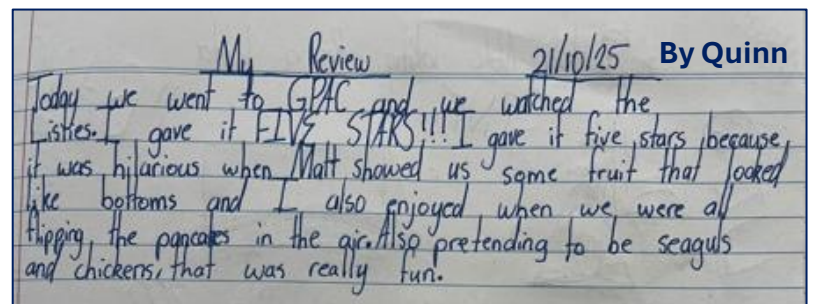 My Review 21/10/25 By Quinn
Today we went to GPAC and we watched the
Listies. I gave it FIVE STARS!!! I gave it five stars because,
it was hilarious when Matt showed us some fruit that looked
like bottoms and I also enjoyed when we were all
flipping the pancakes in the air. Also pretending to be seaguls
and chickens, that was really fun.